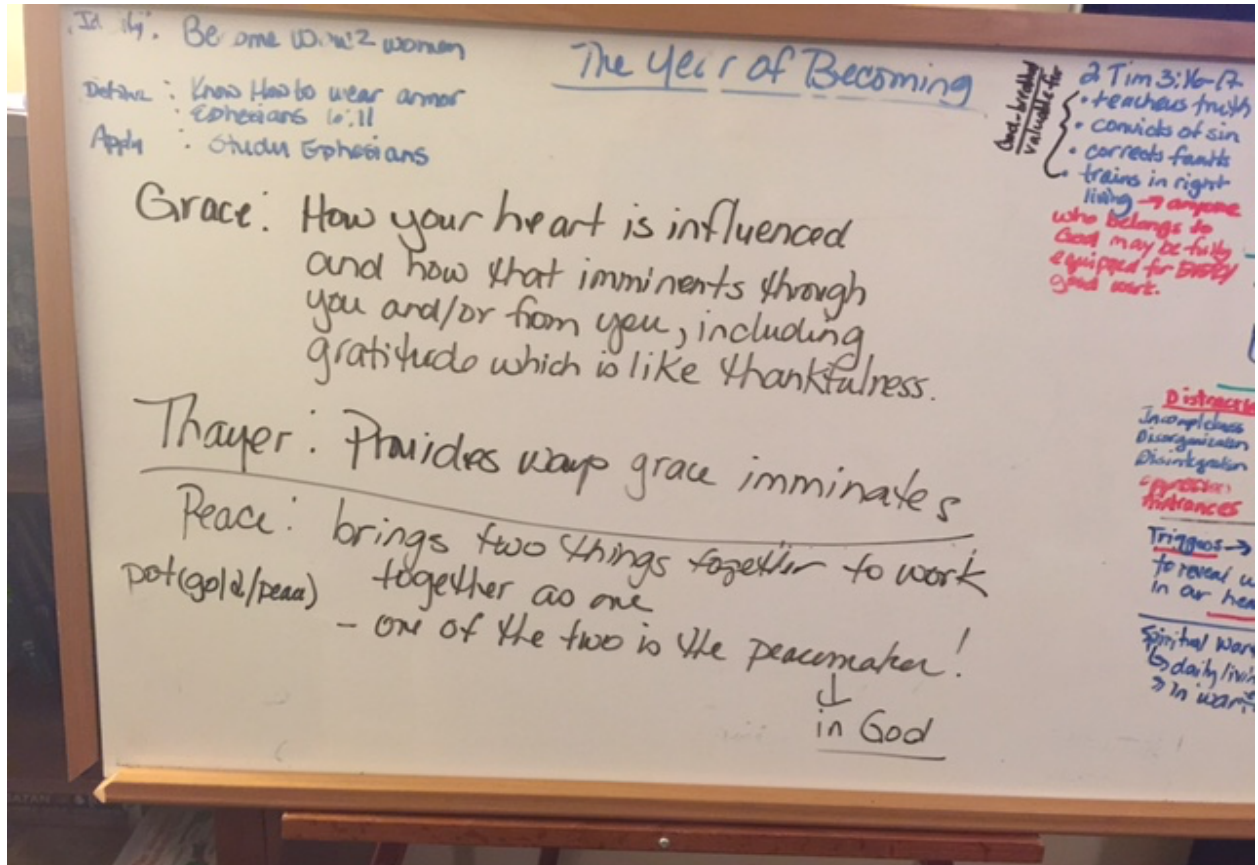 Be ome women
Define : Know How to wear armor
: Ephesians 6:11
Apply : Study Ephesians
The Year of Becoming
God-breathed
valuable for
2 Tim 3:16-17
• teaches us truth
• convicts of sin
• corrects faults
• trains in right
living → anyone
who belongs to
God may be fully
equipped for EVERY
good work.
Grace: How your heart is influenced
and how that imminents through
you and/or from you, including
gratitude which is like thankfulness.
Thayer: Provides ways grace imminates
Peace: brings two things together to work
together as one
pot(gold/peace)
- one of the two is the peacemaker!
↓
in God
Distract
Incompleteness
Disorganization
Disintegration
Hindrances
Triggers →
to reveal w
in our hea
Spiritual War
↳ daily livin